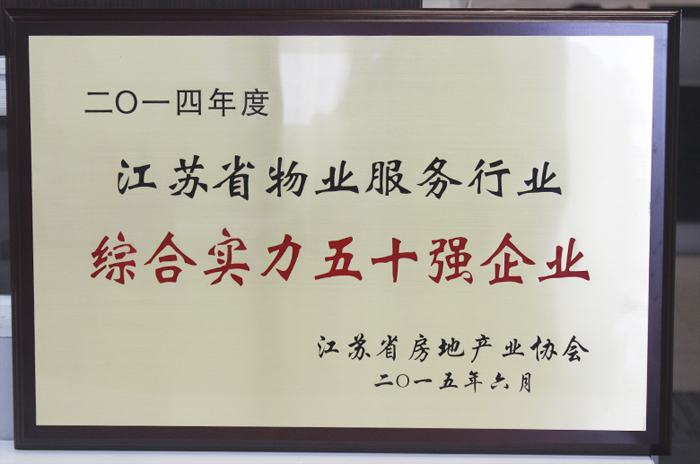 二〇一四年度
江苏省物业服务行业
综合实力五十强企业
江苏省房地产业协会
二〇一五年六月